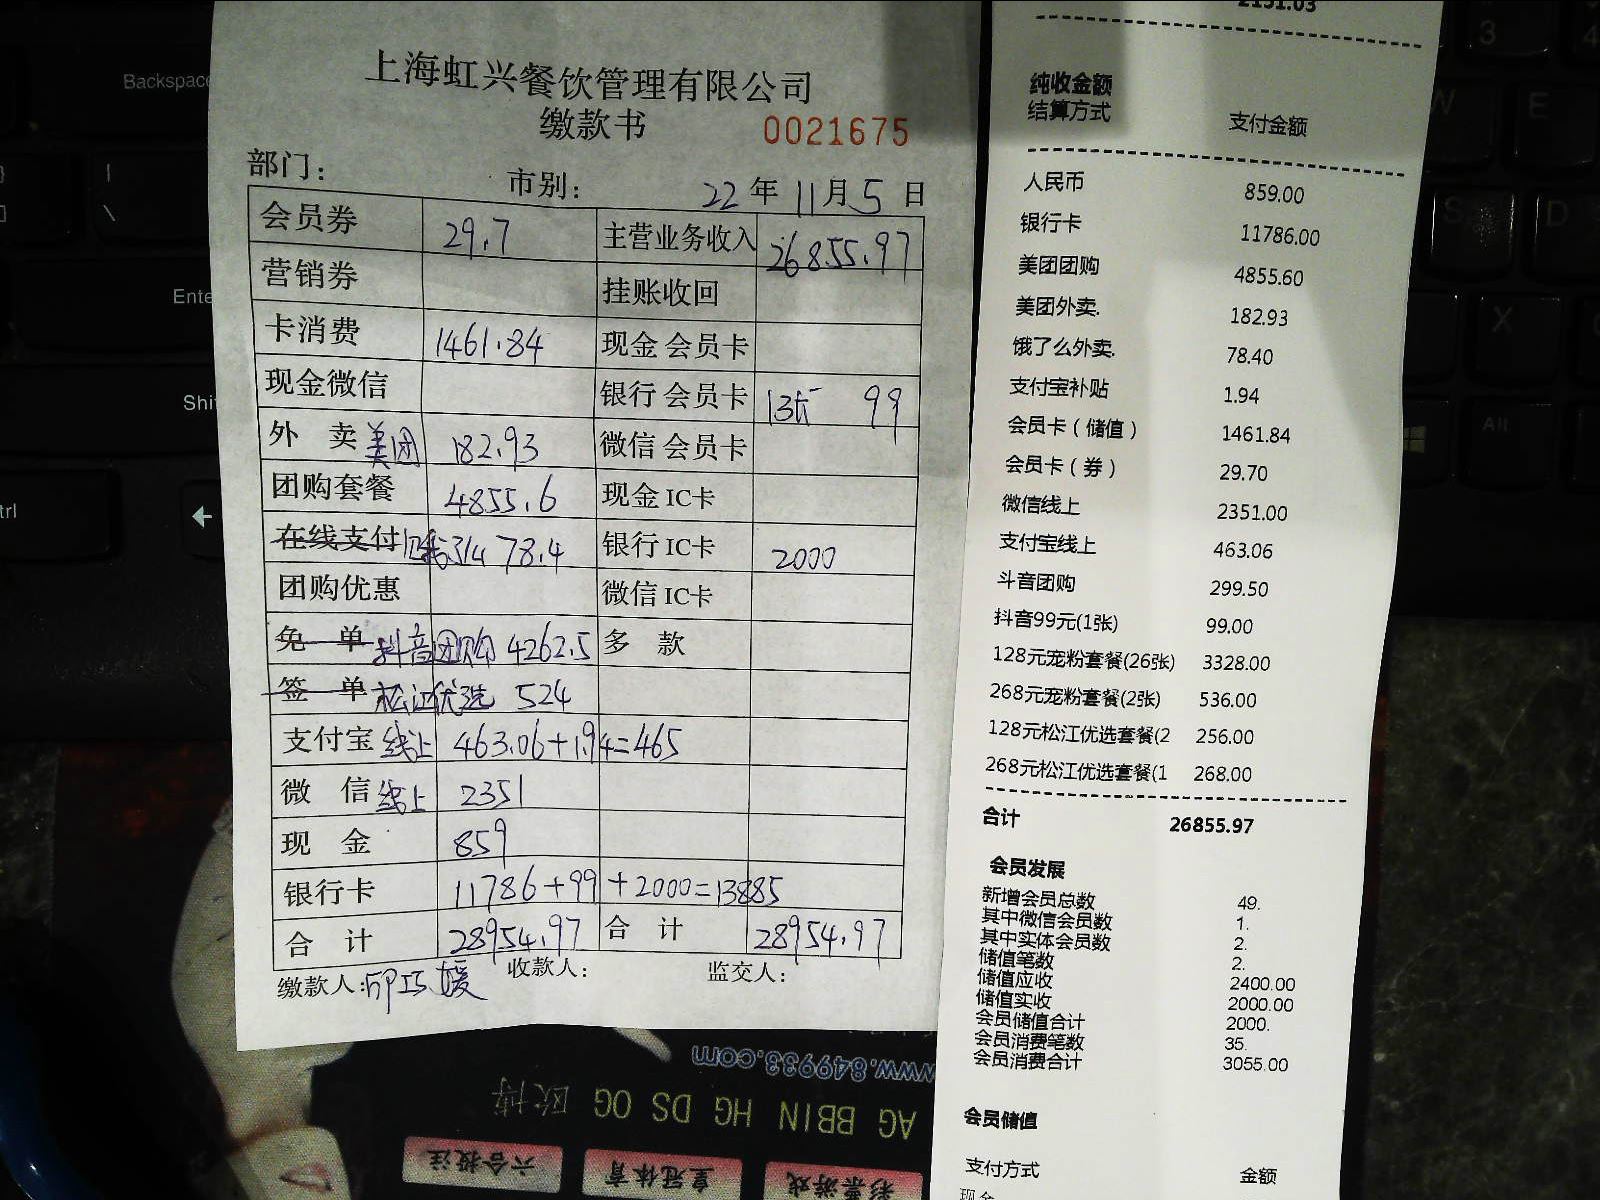 上海虹兴餐饮管理有限公司
缴款书 0021675
部门: 市别: 22年11月5日
会员券 29.7 主营业务收入 26855.97
营销券 挂账收回
卡消费 1461.84 现金会员卡
现金微信 银行会员卡 1张 99
外卖美团 182.93 微信会员卡
团购套餐 4855.6 现金IC卡
在线支付 78.4 银行IC卡 2000
团购优惠 微信IC卡
免单 抖音团购 4262.5 多款
签单 松江优选 524
支付宝线上 463.06+1.94=465
微信线上 2351
现金 859
银行卡 11786+99+2000=13885
合计 28954.97 合计 28954.97
缴款人: 收款人: 监交人:
2151.03
纯收金额
结算方式 支付金额
人民币 859.00
银行卡 11786.00
美团团购 4855.60
美团外卖. 182.93
饿了么外卖. 78.40
支付宝补贴 1.94
会员卡(储值) 1461.84
会员卡(券) 29.70
微信线上 2351.00
支付宝线上 463.06
斗音团购 299.50
抖音99元(1张) 99.00
128元宠粉套餐(26张) 3328.00
268元宠粉套餐(2张) 536.00
128元松江优选套餐(2 256.00
268元松江优选套餐(1 268.00
合计 26855.97
会员发展
新增会员总数 49.
其中微信会员数 1.
其中实体会员数 2.
储值笔数 2.
储值应收 2400.00
储值实收 2000.00
会员储值合计 2000.
会员消费笔数 35.
会员消费合计 3055.00
会员储值
支付方式 金额
现金
Backspace
Enter
Shift
Ctrl
Alt
W
E
S
D
X
3
4
www.849933.com
AG BBIN HG DS OG 欧博
六合投注
皇冠体育
彩票游戏